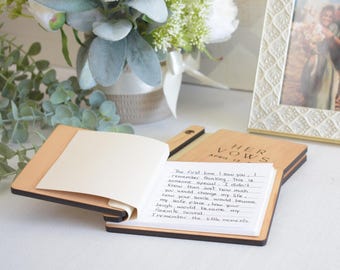 HER
VOWS
The first time I saw you, I
remember thinking, this is
someone special. I didn't
know then just how much
you would change my life,
how your smile would become
my safe place, how your
laugh would become my
favorite sound.
I remember the little moments